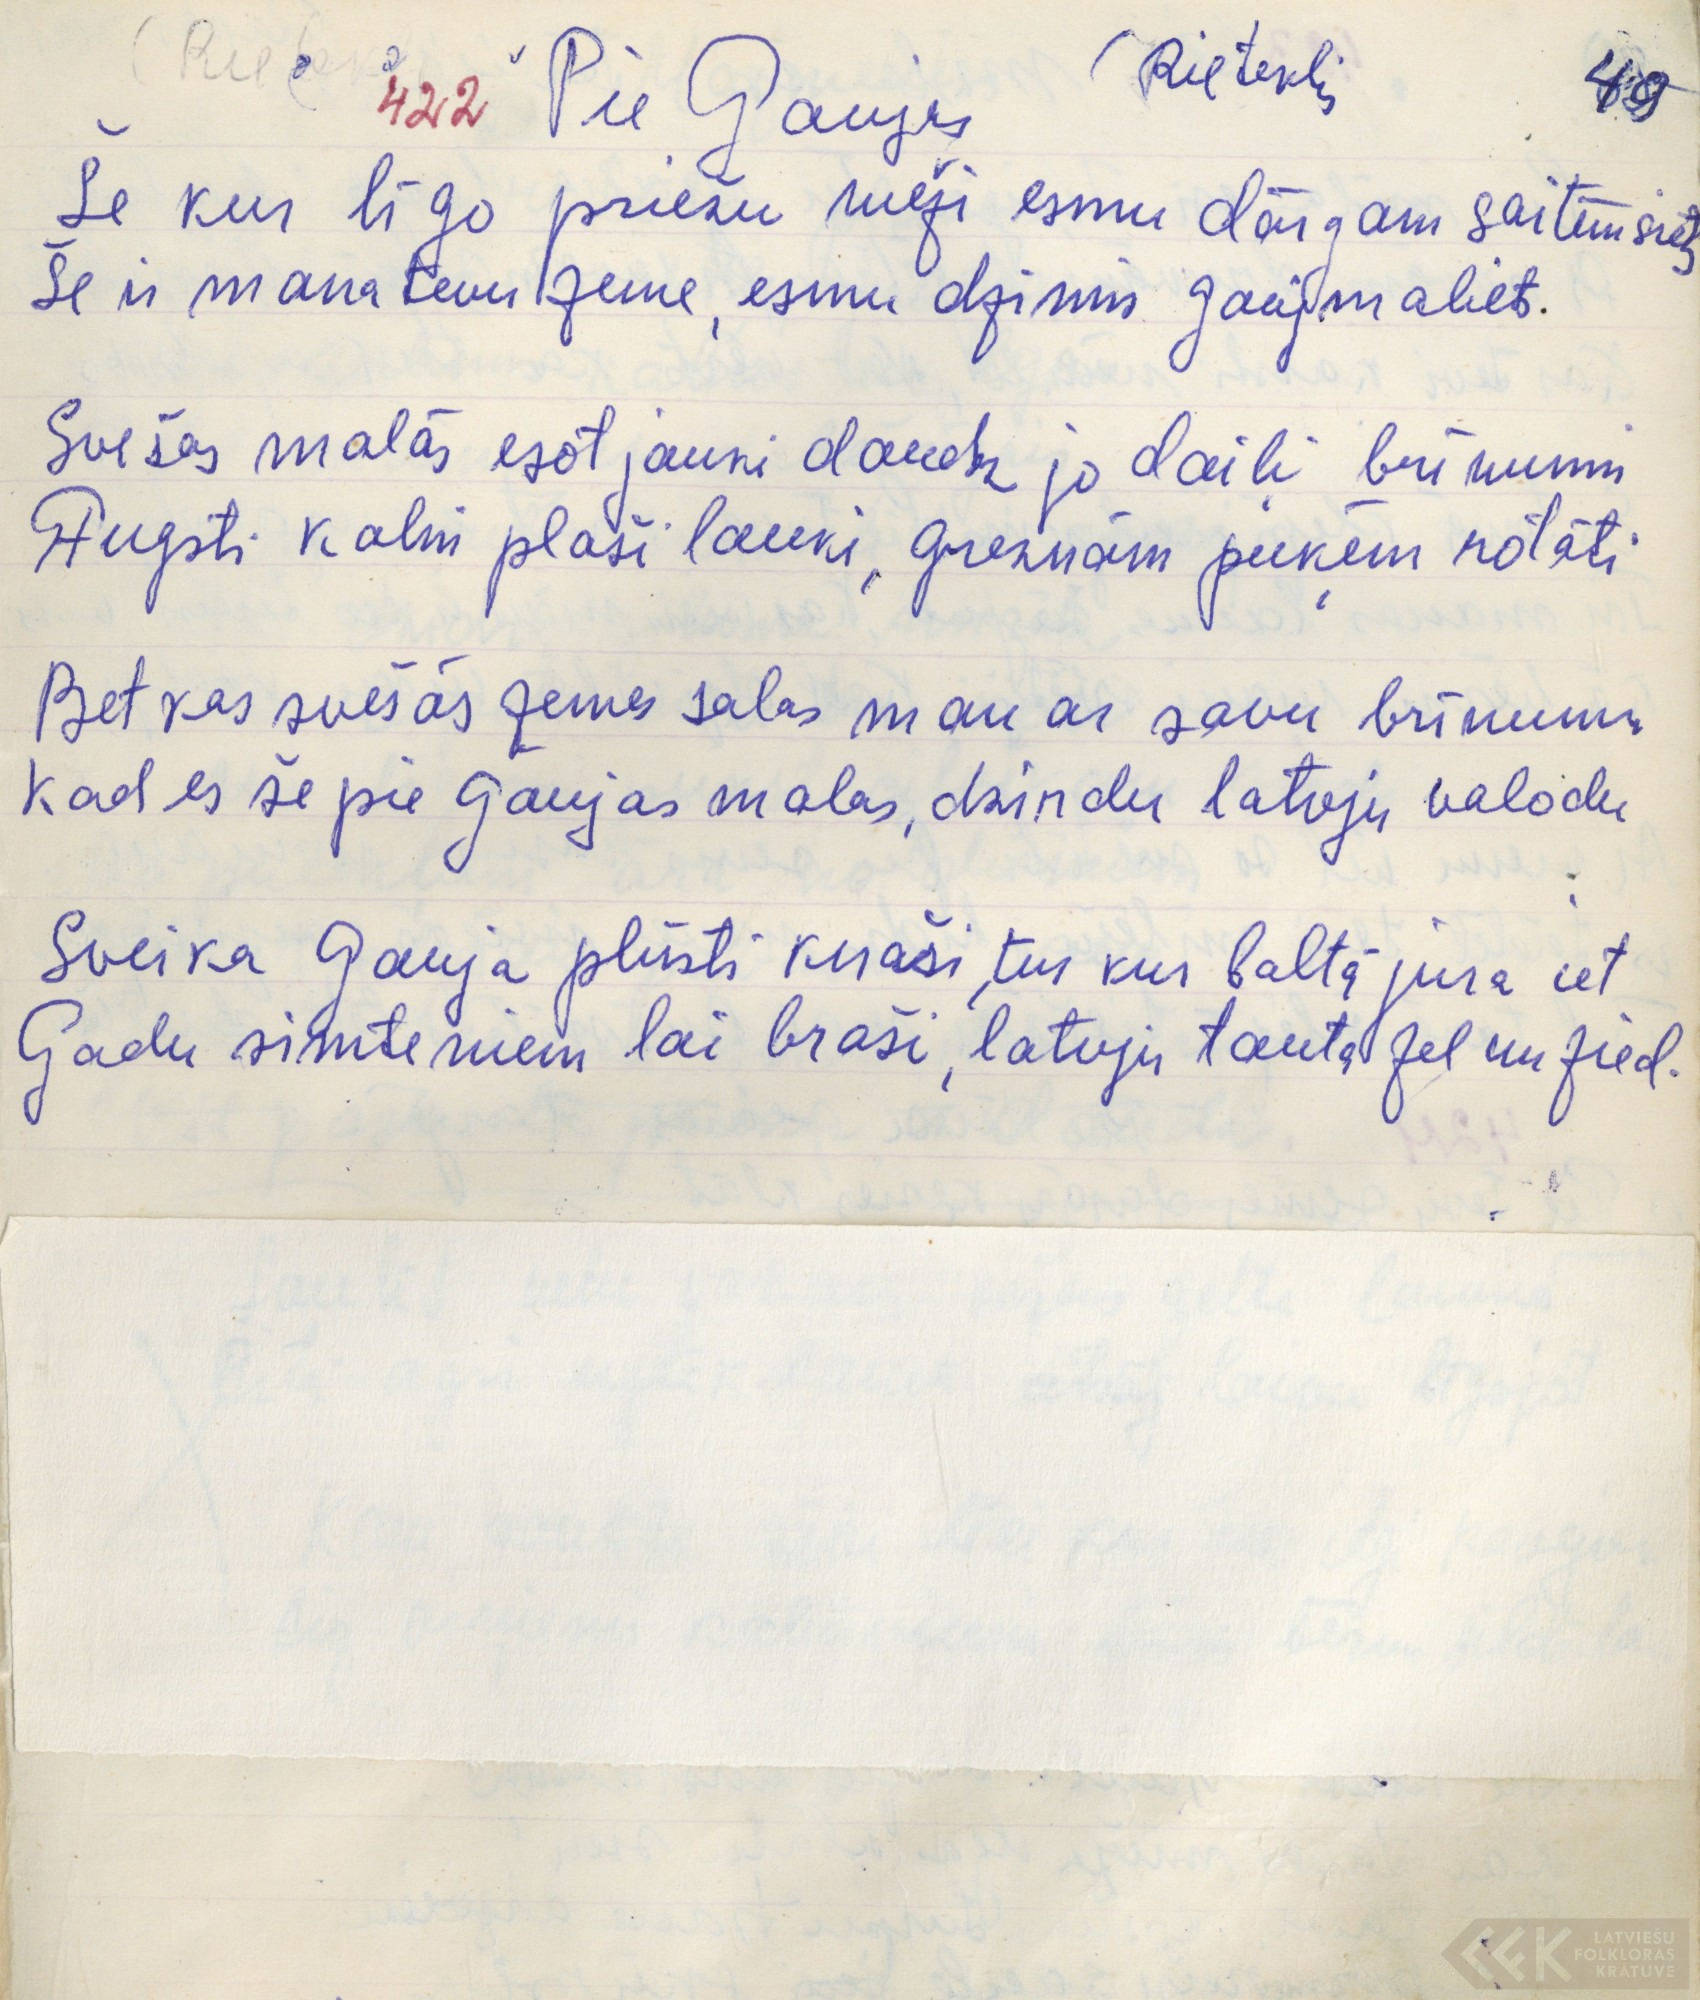 422 Pie Gaujas (Rieteklis 49
Še kur līgo priežu meži esmu dārgam saitēm siets
Še ir mana tevu zeme, esmu dzimis gaujmaliets.
Svešās malās esot jauki daudz jo daiļi brīnumi
Augsti kalni plaši lauki, greznām puķēm rōtāti
Bet kas svešās zemes salas man ar savu brīnumu
Kad es še pie Gaujas malas, dzirdu latvju valodu
Sveika Gauja plūsti kraši, tur kur baltā jura iet
Gadu simteniem lai braši, latvju tauta zel un zied.
LATVIEŠU
FOLKLORAS
KRĀTUVE